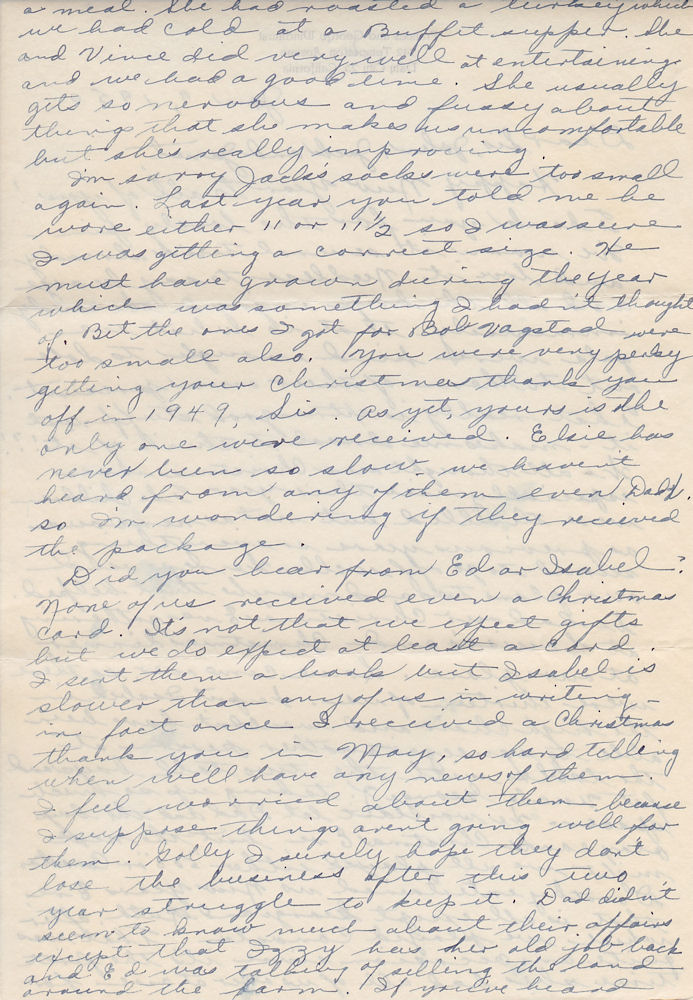 a meal. She had roasted a turkey which
we had cold at a Buffet supper. She
and Vince did very well at entertaining
and we had a good time. She usually
gets so nervous and fussy about
things that she makes us uncomfortable
but she's really improving.
I'm sorry Jack's socks were too small
again. Last year you told me he
wore either 11 or 11½ so I was sure
I was getting a correct size. He
must have grown during the year
which was something I hadn't thought
of. But the ones I got for Bob Vagstad were
too small also. You were very perky
getting your Christmas thank you
off in 1949, Sis. As yet, yours is the
only one we've received. Elsie has
never been so slow. We haven't
heard from any of them even Dad.
so I'm wondering if they received
the package.
Did you hear from Ed or Isabel?
None of us received even a Christmas
card. It's not that we expect gifts
but we do expect at least a card.
I sent them a book but Isabel is
slower than any of us in writing -
in fact once I received a Christmas
thank you in May, so hard telling
when we'll have any news of them.
I feel worried about them because
I suppose things aren't going well for
them. Golly I surely hope they don't
lose the business after this two
year struggle to keep it. Dad didn't
seem to know much about their affairs
except that Izzy has her old job back
and Ed was talking of selling the land
around the farm. If you've heard